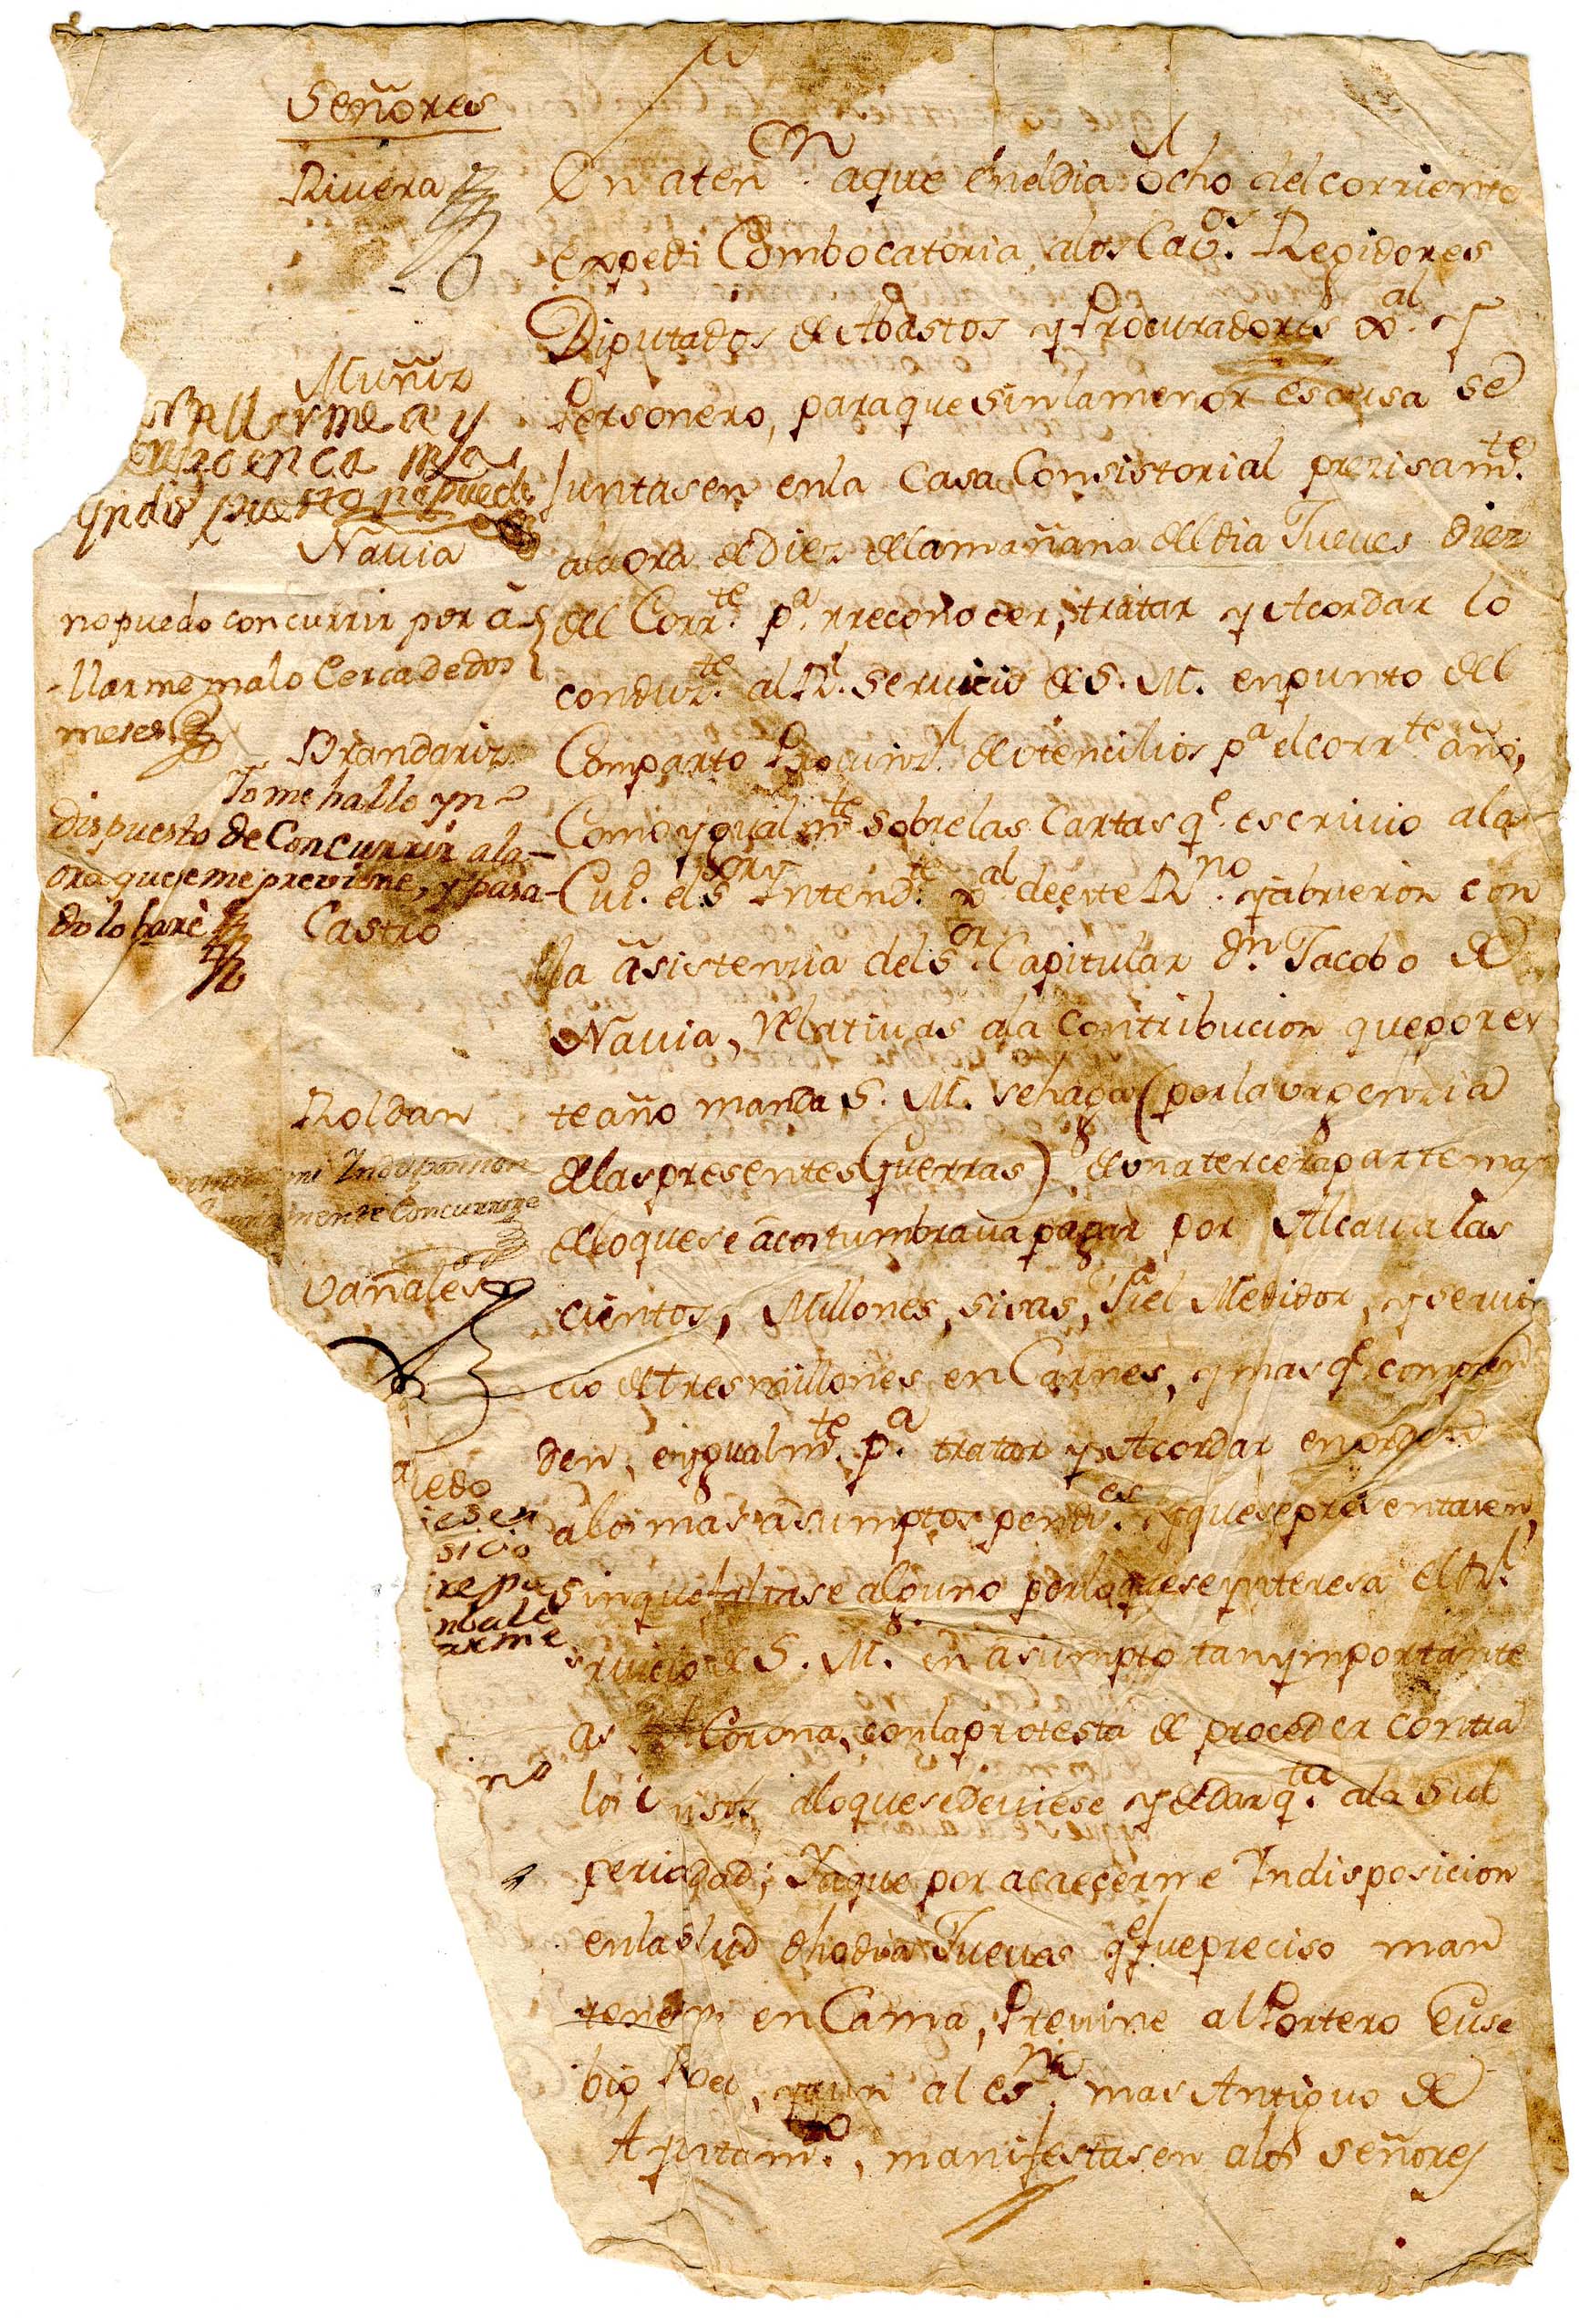 Señores
Rivera
Muñiz
allarme a y
en
yndis puesto no puedo
Navia
no puedo concurrir por a
llarme malo Cerca de dos
meses
Brandariz
Yo me hallo yn
dispuesto de Concurrir ala
ora que se me previene, y pasa
do lo harè
Castro
Roldan
mi Indisposision
mente Concurrire
Vañales
edo
iesen
sicio
re pu
arme
no
En aten.on aque enel dia ocho del corriente
Expedi Combocatoria alos Cav.os Regidores
Diputados de Abastos y Procuradores Gral. y
Personero, para que sin la menor escusa se
Juntasen enla Casa Consistorial prezisam.te
ala ora de Diez dela mañana del dia Jueves diez
del Corr.te p.a rreconocer, tratar y Acordar lo
conduz.te al R.l Servicio de S. M. en punto del
Comparto Provinz.l de otencilios p.a el corr.te año,
Como ygual m.te sobre las Cartas q.e escrivio ala
Ciu.d el s.or Intend.te Gral. de este R.no y abrieron con
la asistenzia del S.or Capitular D.n Jacobo de
Navia, relativas ala Contribucion que por es
te año manda S. M. se haga (por la urgenzia
de las presentes Guerras) de una tercera parte mas
de lo que se acostumbrava pagar por Alcavalas
cientos, Millones, sisas, fiel Medidor, y servi
cio de tres millones en Carnes, y mas q.e compren
den, e ygualm.te p.a tratar y Acordar en orden
alos mas asumptos pend.es y que se presentaren,
sin que faltase alguno por lo que se ynteresa el R.l
servicio de S. M. en asumpto tan ymportante
as Corona, con la protesta de proceder contra
los a lo que se deviese y de dar q.ta ala Su
perioridad; Y aque por acaecerme Indisposicion
en la salud dho dia Jueves q.e fue preciso man
tenerm en Cama, Previne al Portero Euse
bio Roel, y aun al es.no mas Antiguo de
Ayuntam.to, manifestasen alos señores